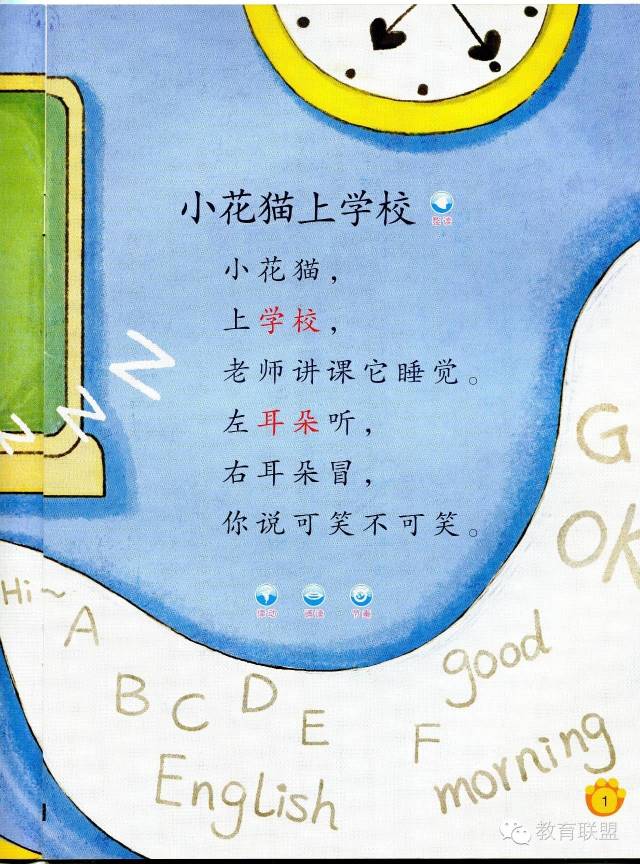 小花猫上学校
整读
小花猫，
上学校，
老师讲课它睡觉。
左耳朵听，
右耳朵冒，
你说可笑不可笑。
律动 诵读 节奏
Hi~
A
B C D E F G
OK
good
morning
English
1
教育联盟